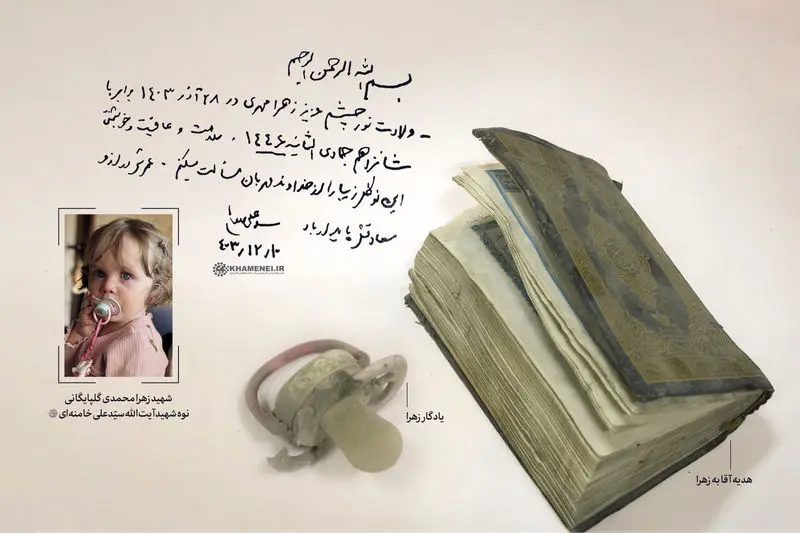 بسم الله الرحمن الرحیم
- ولادت نور چشم عزیز زهرا مهدی در ۲۸ آذر ۱۴۰۳ برابر با
شانزدهم جمادی الثانیه ۱۴۴۶ ، سلامت و عافیت و خوشبختی
این نوگل زیبا را از خداوند مهربان مسألت میکنم . عمرش دراز و
سعادتش پایدار باد
سید علی
۴۰۳/۱۲/۱۰
KHAMENEI.IR
شهید زهرا محمدی گلپایگانی
نوه شهید آیت‌الله سیّد علی خامنه‌ای
یادگار زهرا
هدیه آقا به زهرا